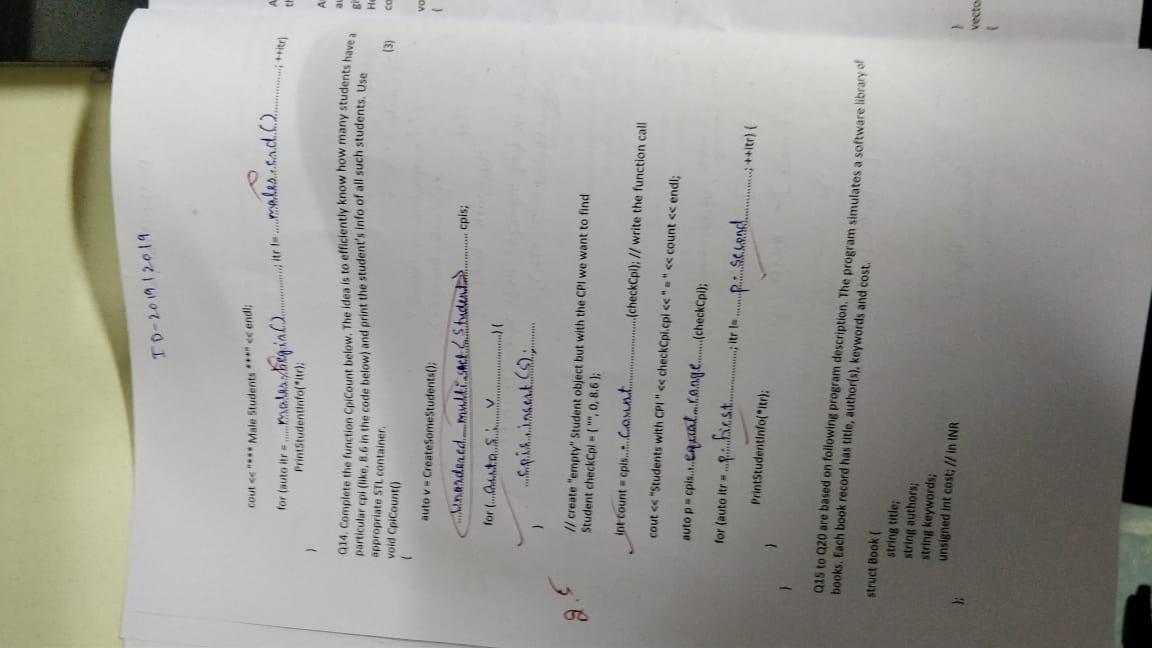 ID-201912019
cout << "*** Male Students ***" << endl;
for (auto itr = ......males.begin()..............; itr != ....males.end()..............; ++itr)
PrintStudentInfo(*itr);
}
Q14. Complete the function CpiCount below. The idea is to efficiently know how many students have a
particular cpi (like, 8.6 in the code below) and print the student's info of all such students. Use
appropriate STL container.
(3)
void CpiCount()
{
auto v = CreateSomeStudents();
...Unordered multiset<Student>.......... cpis;
for (...auto s : v..................) {
...cpis.insert(s);........
}
2.5
// create "empty" Student object but with the CPI we want to find
Student checkCpi = { "", 0, 8.6 };
int count = cpis...count..................(checkCpi); // write the function call
cout << "Students with CPI " << checkCpi.cpi << " = " << count << endl;
auto p = cpis...equal_range......(checkCpi);
for (auto itr = ...p.first..............; itr != ......p.second.............; ++itr) {
PrintStudentInfo(*itr);
}
}
Q15 to Q20 are based on following program description. The program simulates a software library of
books. Each book record has title, author(s), keywords and cost.
struct Book {
string title;
string authors;
string keywords;
unsigned int cost; // in INR
};
}
{